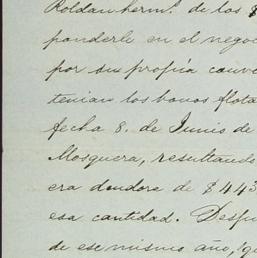 Roldan herm.s de los $
ponderle en el negoc
por su propia conve
tenian los bonos flota
fecha 8. de Junio de
Mosquera, resultando
era deudora de $443
esa cantidad. Despu
de ese mismo año, que